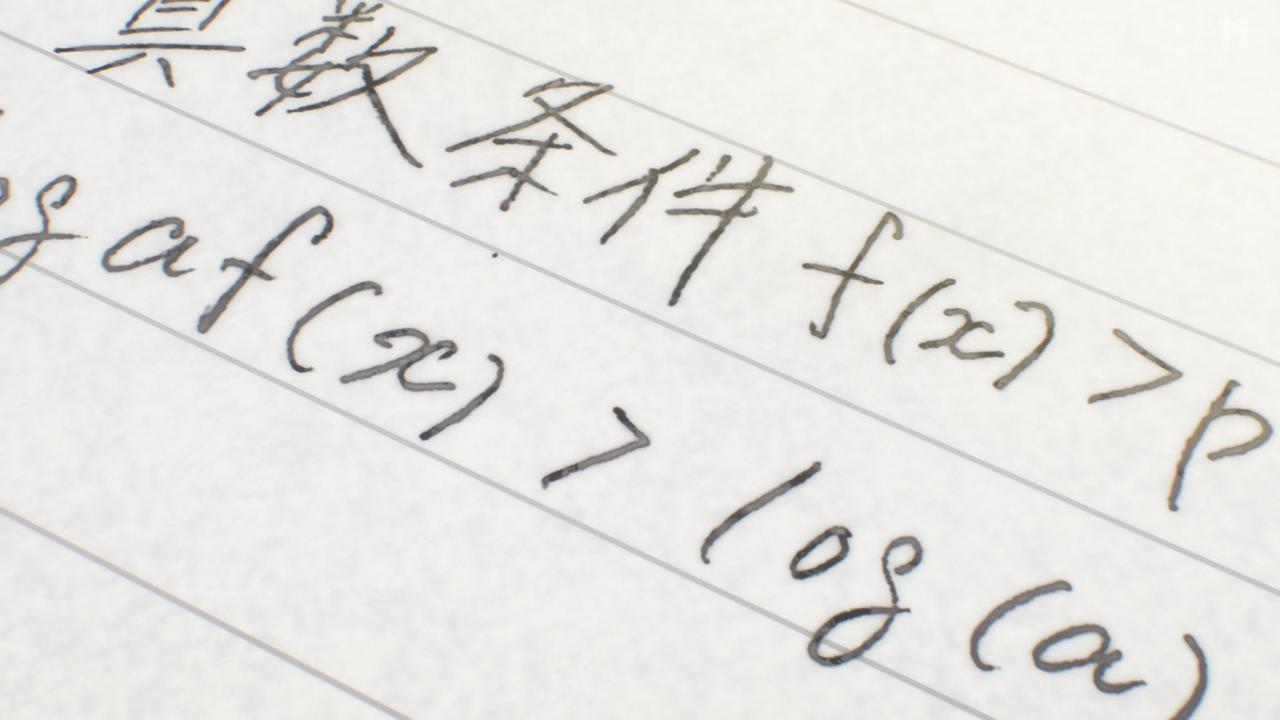 真数条件 f(x)>p
og a f(x) > log(a)